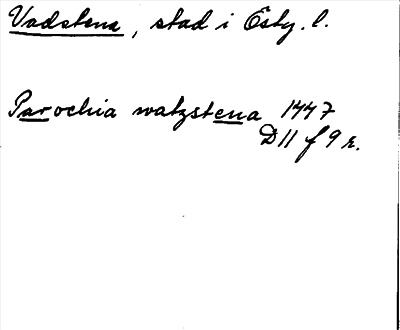 Vadstena, stad i Östg. l.
Parochia watzstena 1447
D 11 f 9 r.